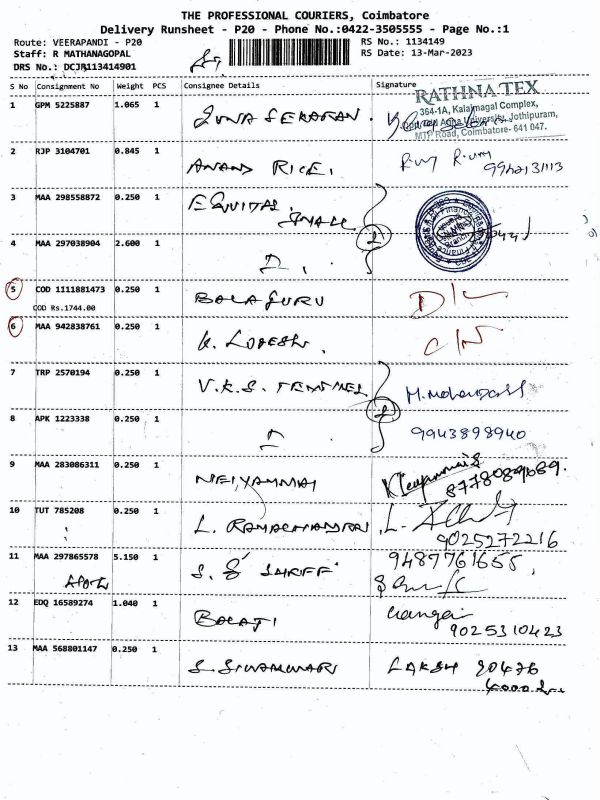 THE PROFESSIONAL COURIERS, Coimbatore
Delivery Runsheet - P20 - Phone No.:0422-3505555 - Page No.:1
Route: VEERAPANDI - P20
RS No.: 1134149
Staff: R MATHANAGOPAL
RS Date: 13-Mar-2023
DRS No.: DCJR113414901
S No Consignment No Weight PCS Consignee Details Signature
RATHNA TEX
364-1A, Kalaimagal Complex,
Jothipuram,
MTP Road, Coimbatore- 641 047.
1 GPM 5225887 1.065 1
2 RJP 3104701 0.845 1 ANAND RICE.
9942131113
3 MAA 298558872 0.250 1 EQUITAS SMALL
4 MAA 297038904 2.600 1
5 COD 1111881473 0.250 1 BALAGURU D/L
COD Rs.1744.00
6 MAA 942838761 0.250 1 K. LOGESH. C/N
7 TRP 2570194 0.250 1 V.K.S. M.Mohandass
8 APK 1223338 0.250 1 9943898940
9 MAA 283086311 0.250 1 NEIYAMMAI
10 TUT 785208 0.250 1 L. RAMACHANDRAN L.
9025272216
11 MAA 297865578 5.150 1 9487761655
12 EDQ 16589274 1.040 1 BALAJI
9025310423
13 MAA 568801147 0.250 1